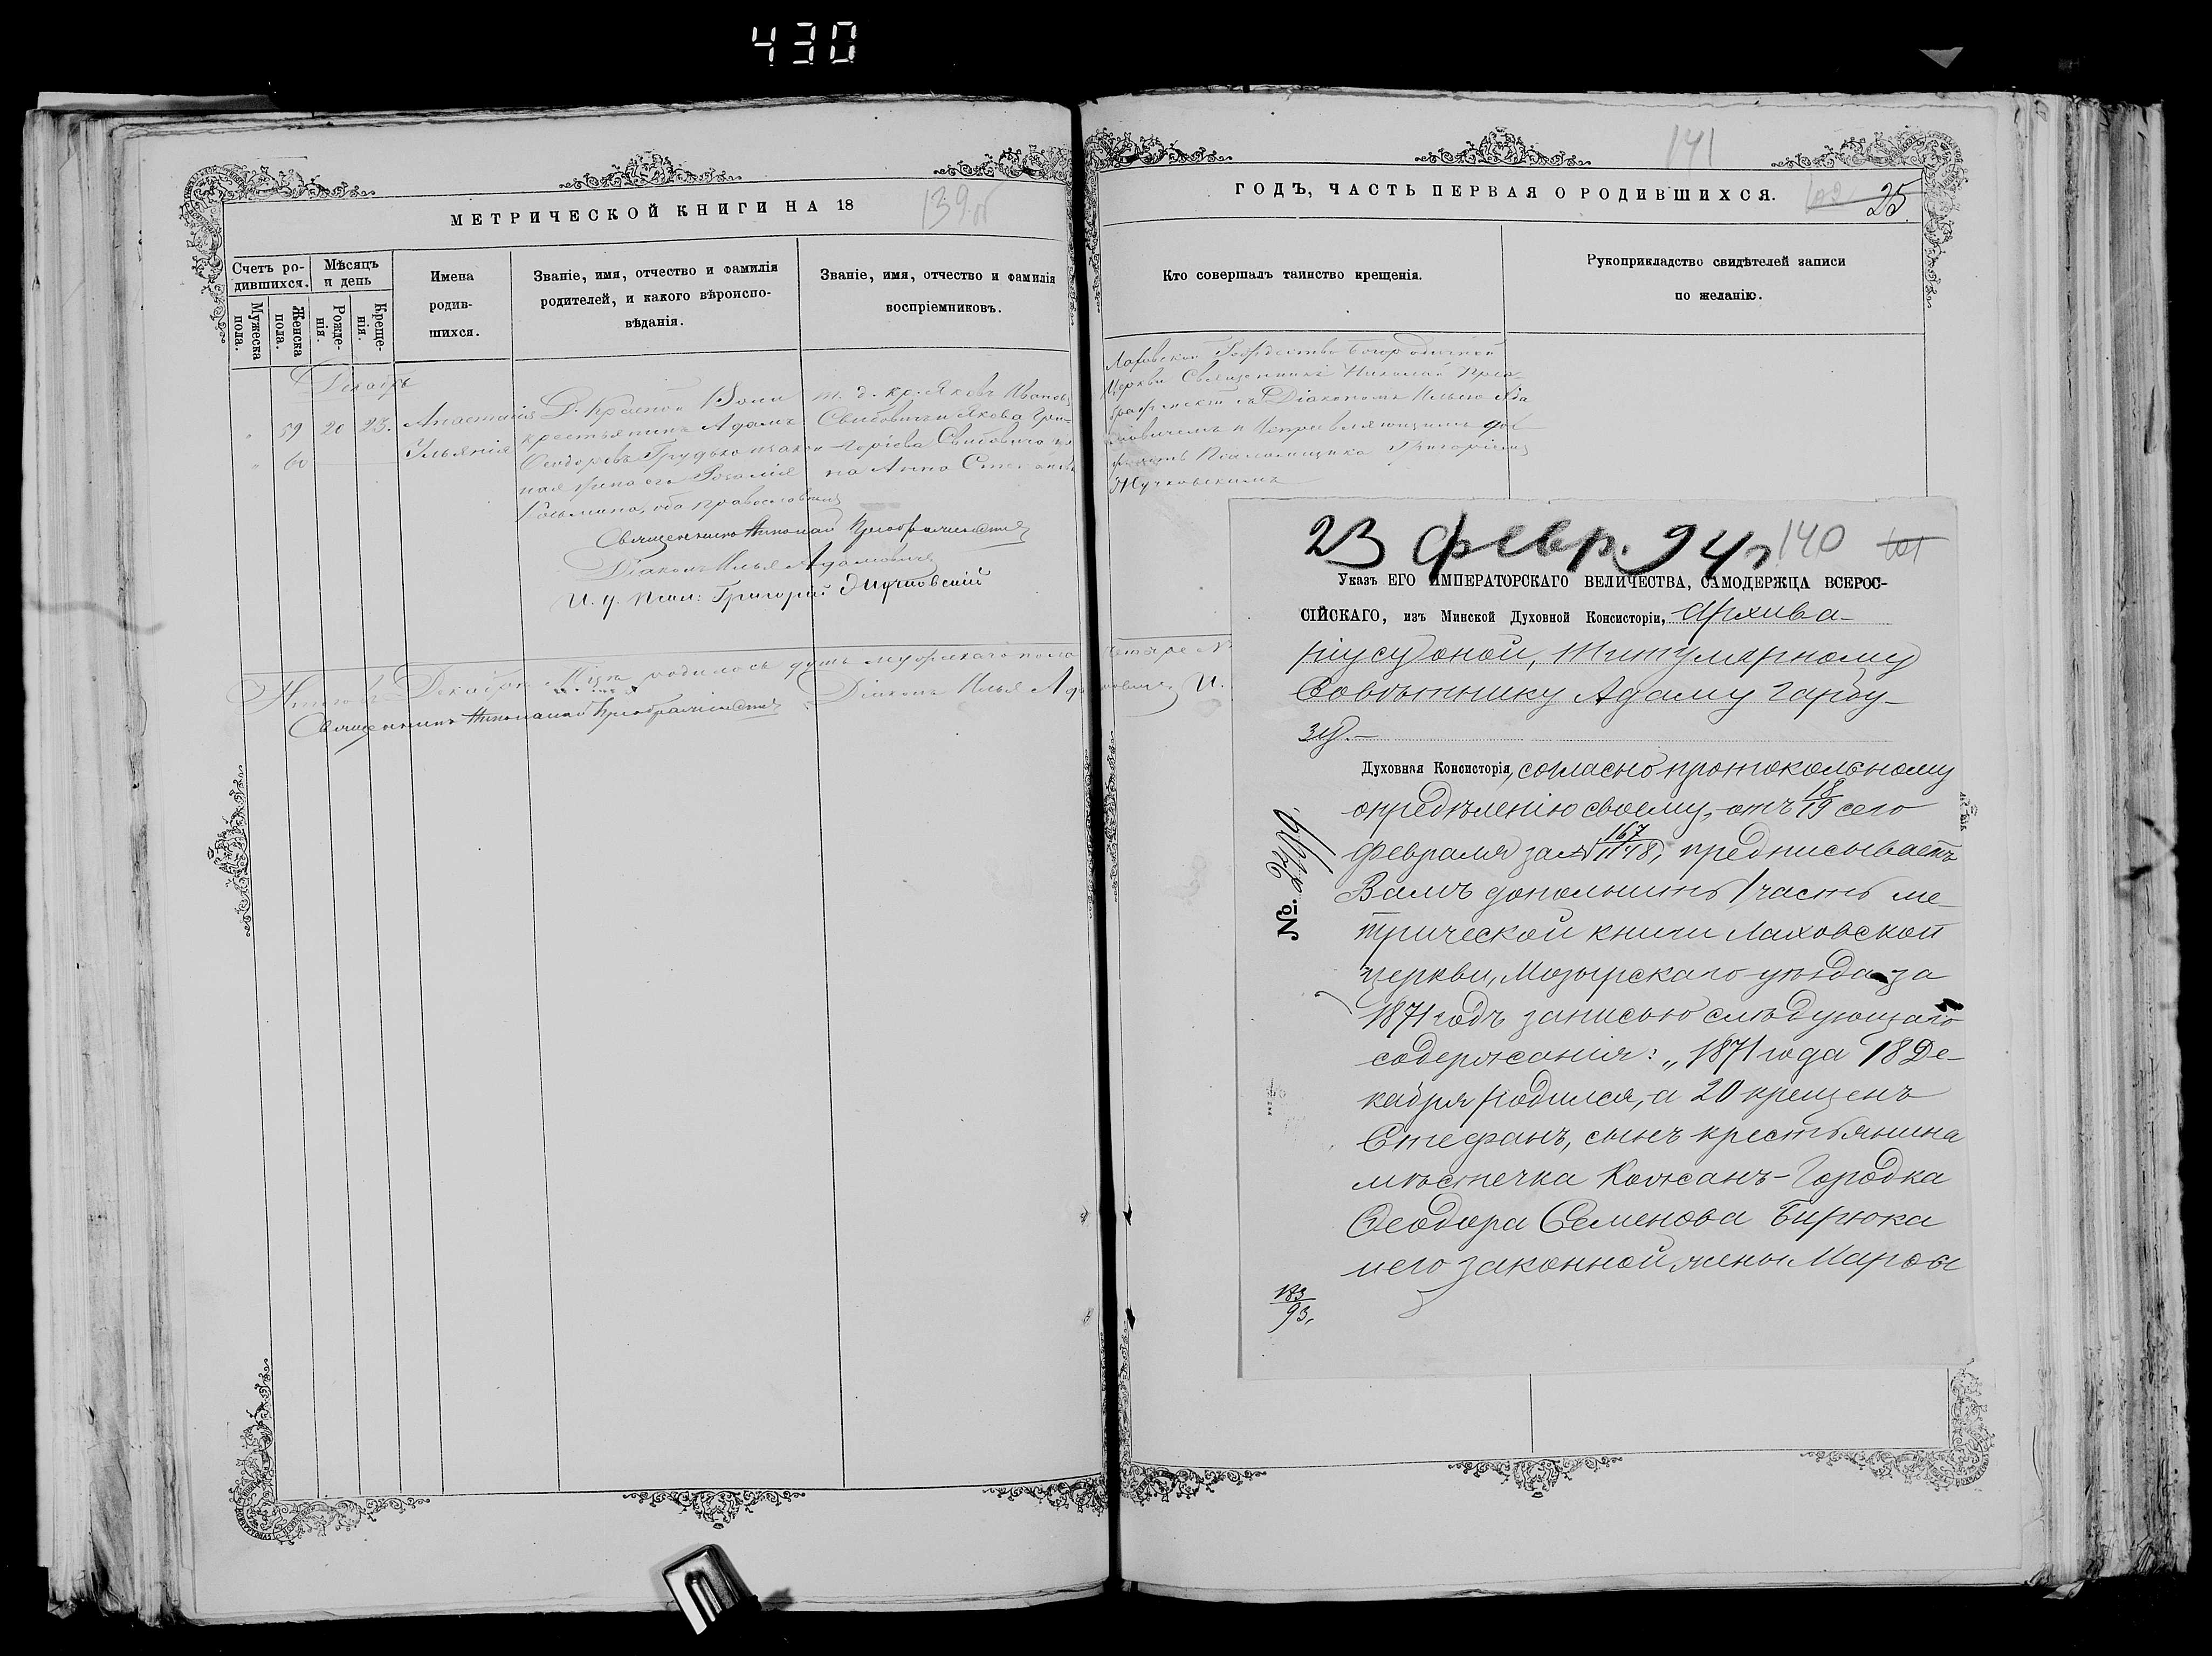 430
МЕТРИЧЕСКОЙ КНИГИ НА 18
139об
Счетъ ро-
дившихся.
Мѣсяцъ
и день
Мужеска
пола.
Женска
пола.
Рожде-
нія.
Креще-
нія.
Имена
родив-
шихся.
Званіе, имя, отчество и фамилія
родителей, и какого вѣроиспо-
вѣданія.
Званіе, имя, отчество и фамилія
воспріемниковъ.
Декабрь
59 20 23. Анастасія
60 Ульянія
Д. Красной Воли
крестьянинъ Адамъ
Ѳеодоровъ Грудько и закон
ная жена его
Козьмина, оба православныя
т. д. кр. Яковъ Ивановъ
Свибовичъ и Якова Гри-
горіева Свибовича же
на Анна
Священникъ Николай Преображенскій
Діаконъ Илья Адамовичъ
И. д. Псал: Григорій Жучковскій
Итого въ Декабрѣ родилось душъ мужскаго пола
Священникъ Николай Преображенскій Діаконъ Илья Адамовичъ И.
141
ГОДЪ, ЧАСТЬ ПЕРВАЯ О РОДИВШИХСЯ.
25.
Кто совершалъ таинство крещенія.
Рукоприкладство свидѣтелей записи
по желанію.
Лаховской Рождество Богородичной
Церкви Священникъ Николай Прео-
браженскій съ Діакономъ Ильею Ада
мовичемъ и Исправляющимъ дол
Псаломщика Григоріемъ
Жучковскимъ
23 февр. 94 г 140 101
Указъ ЕГО ИМПЕРАТОРСКАГО ВЕЛИЧЕСТВА, САМОДЕРЖЦА ВСЕРОС-
СІЙСКАГО, изъ Минской Духовной Консисторіи, Архива-
ріусу оной, Титулярному
Совѣтнику Адаму Гарбу-
зу.—
Духовная Консисторія, согласно протокольному
опредѣленію своему, отъ 18/19 сего
Февраля за № 167/1148, предписываетъ
Вамъ дополнить I часть ме-
трической книги Лаховской
церкви, Мозырскаго уѣзда за
1871 годъ записью слѣдующаго
содержанія: „1871 года 18 Де-
кабря родился, а 20 крещенъ
Стефанъ, сынъ крестьянина
мѣстечка Кожанъ-Городка
Ѳеодора Семенова Бирюка
и его законной жены Марѳы
№. 2799.
183/93.